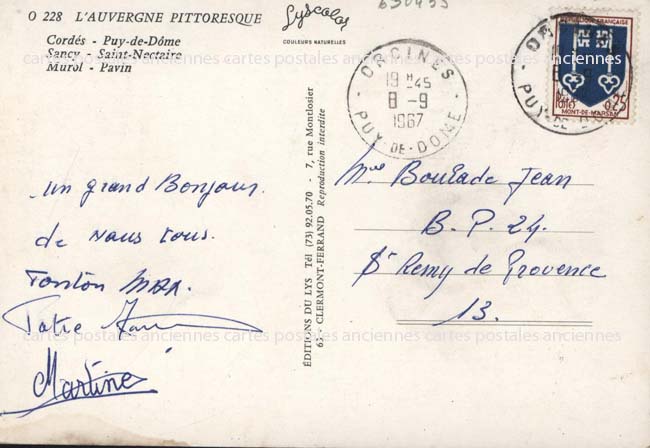 O 228 L'AUVERGNE PITTORESQUE
Cordés - Puy-de-Dôme
Sancy - Saint-Nectaire
Murol - Pavin
Lyscolor
COULEURS NATURELLES
630433
ORCINES
19 H 45
8 - 9
1967
PUY-DE-DOME
REPUBLIQUE FRANÇAISE
0,25
MONT-DE-MARSAN
un grand Bonjour
de nous tous.
Tonton Max
Martine
ÉDITIONS DU LYS Tél (73) 92.05.70 - 7, rue Montlosier
63 - CLERMONT-FERRAND Reproduction interdite
Boulade Jean
B.P. 24.
St Remy de Provence
13.
cartes postales anciennes cartes postales anciennes cartes postales anciennes